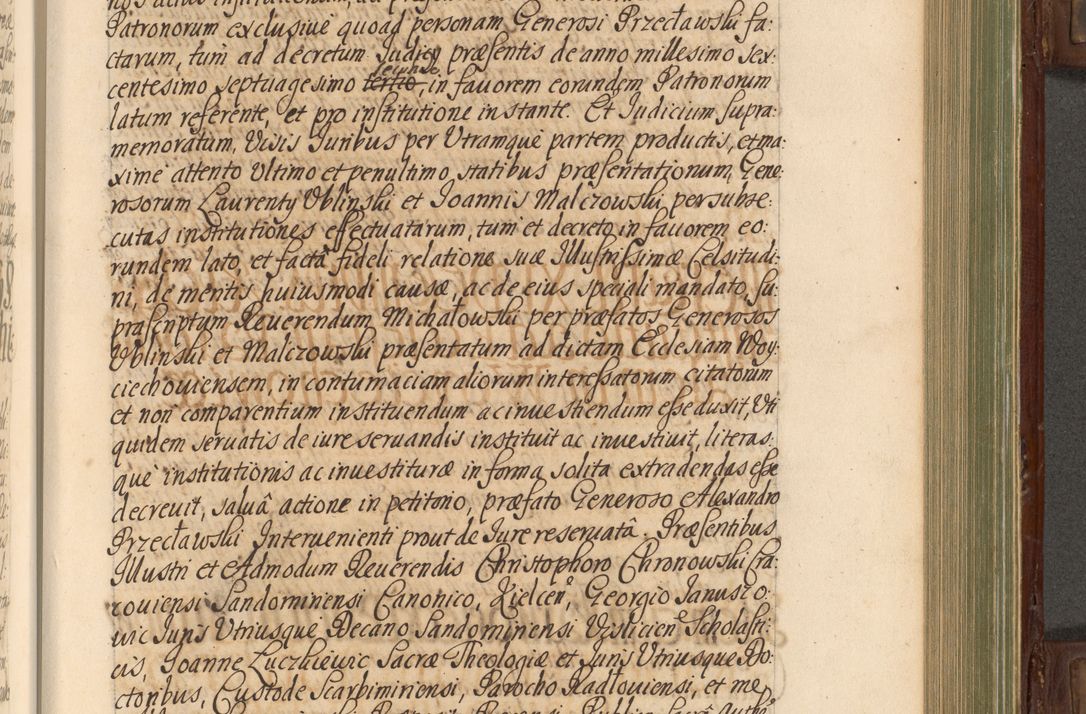 Patronorum exclusiuè quoad personam Generosi Przecławski fa:
ctarum, tum ad decretum Judicy præsentis de anno millesimo sex:
centesimo septuagesimo tertio, in fauorem eorundem Patronorum
latum referente, et pro institutione instante. Et Judicium supra:
memoratum, Visis Juribus per Utramque partem productis, et ma:
ximè attento Ultimo et penultimo statibus præsentationum Gene:
rosorum Laurenty Ublinski et Joannis Malczowski per subse:
cutas institutiones effectuatarum, tum et decreto in fauorem eo:
rundem lato, et factâ fideli relatione suæ Illustrissimæ Celsitudi:
ni, de mentis huiusmodi causæ, ac de eius speciali mandato, su:
prascriptum Reuerendum Michałowski per præfatos Generosos
Ublinski et Malczowski præsentatum ad dictam Ecclesiam Woy:
ciechouiensem, in contumaciam aliorum interessatorum citatorum
et non comparentium instituendum ac inuestiendum esse duxit, Uti
quidem seruatis de iure seruandis instituit ac inuestiuit, literas:
que institutionis ac inuestituræ in forma solita extradendas esse
decreuit, saluâ actione in petitorio, præfato Generoso Alexandro
Przecławski Interuenienti prout de Jure reseruatâ. Præsentibus
Illustri et Admodum Reuerendis Christophoro Chronowski Cra:
couiensi Sandominensi Canonico, Kielcen, Georgio Janusio:
uic Juris Utriusque Decano Sandominensi Vislicien Scholasti:
cis, Joanne Luczkiewic Sacræ Theologiæ et Juris Utriusque Do:
ctoribus, Custode Scarbiminensi, Parocho Radłouiensi, et me